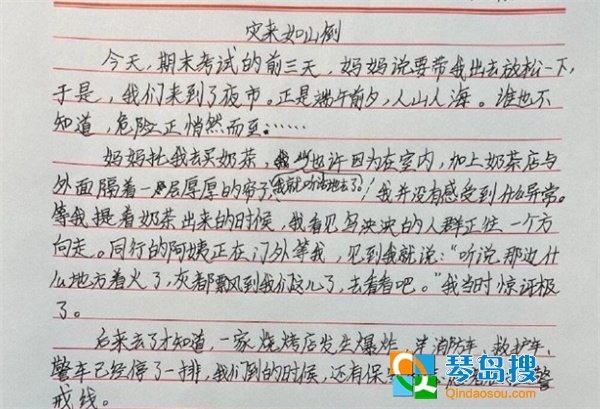 灾来如山倒
今天，期末考试的前三天，妈妈说要带我出去放松一下，
于是，我们来到了夜市。正是端午前夕，人山人海。谁也不
知道，危险正悄然而至……
妈妈托我去买奶茶，也许因为在室内，加上奶茶店与
外面隔着一层厚厚的帘子，我就听话地去了！我并没有感受到什么异常。
等我提着奶茶出来的时候，我看见乌泱泱的人群正往一个方
向走。同行的阿姨正在门外等我，见到我就说：“听说那边什
么地方着火了，灰都飘到我们这儿了，去看看吧。”我当时惊讶极
了。
后来去了才知道，一家烧烤店发生爆炸，消防车、救护车、
警车已经停了一排，我们到的时候，还有保 警
戒线。
琴岛搜
Qindaosou.com